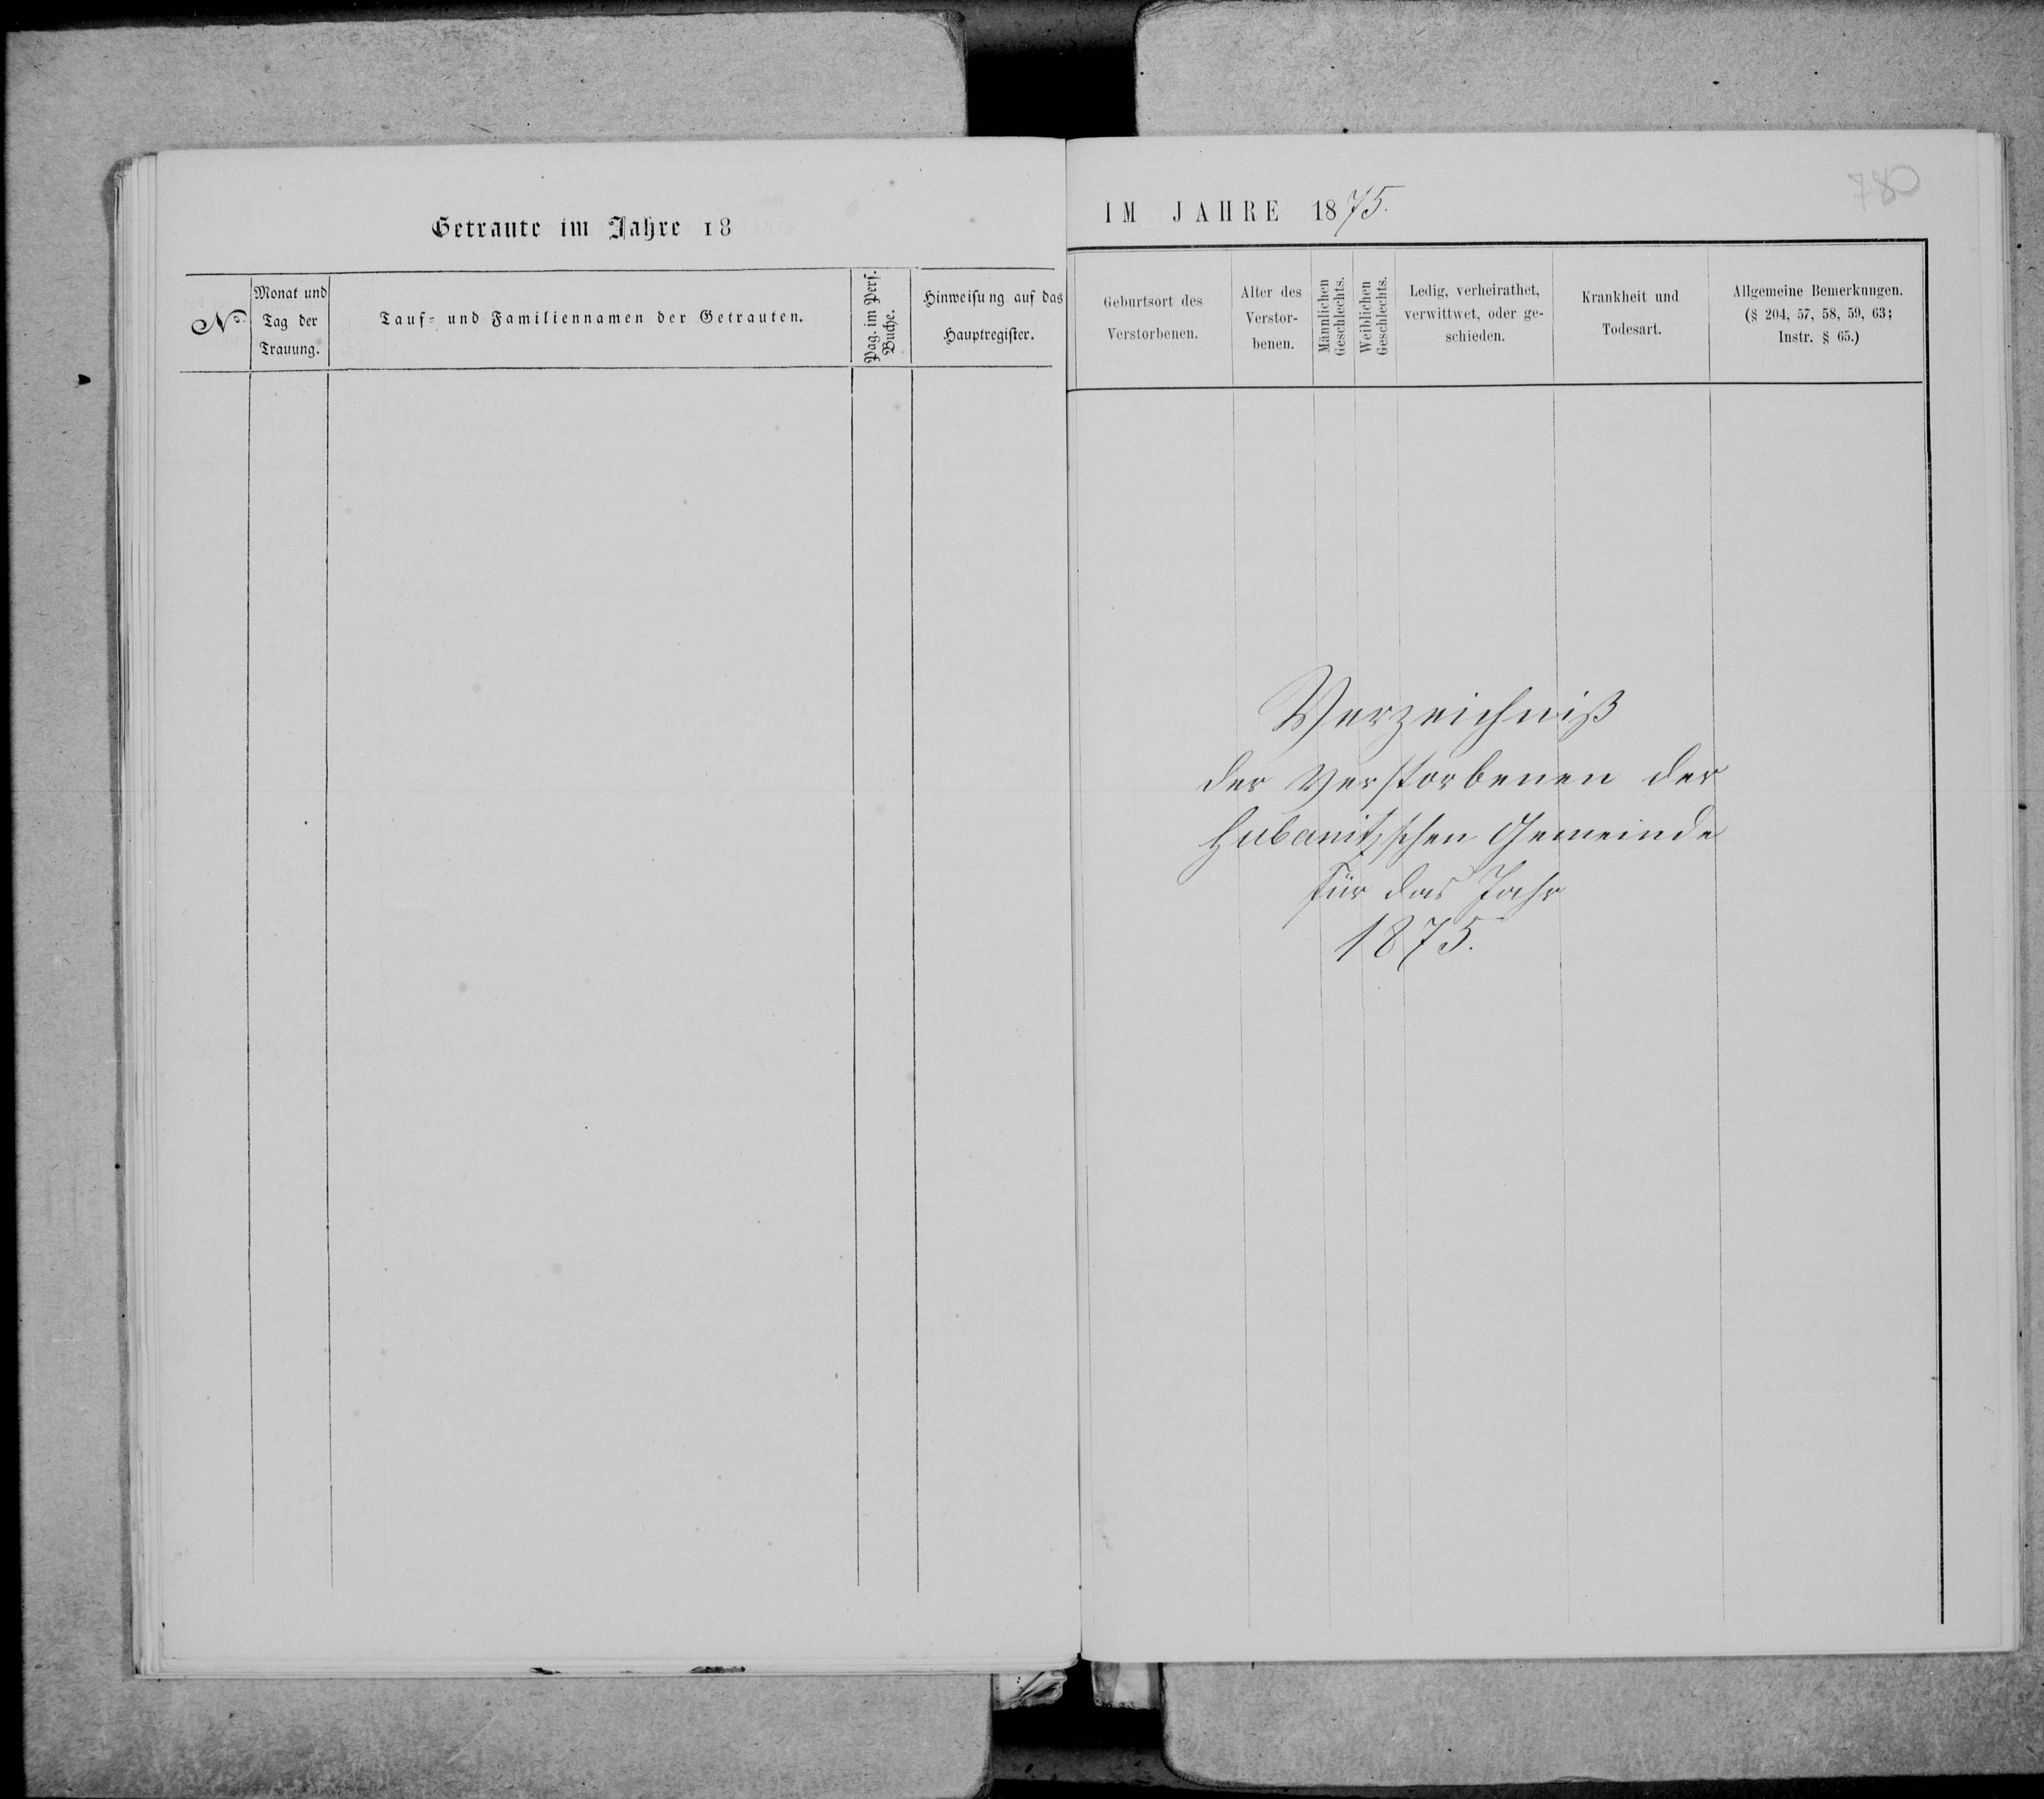 Getraute im Jahre 18
No
Monat und
Tag der
Trauung.
Tauf- und Familiennamen der Getrauten.
Pag. im Pers.
Buche.
Hinweisung auf das
Hauptregister.
780
IM JAHRE 1875.
Geburtsort des
Verstorbenen.
Alter des
Verstor-
benen.
Männlichen
Geschlechts.
Weiblichen
Geschlechts.
Ledig, verheirathet,
verwittwet, oder ge-
schieden.
Krankheit und
Todesart.
Allgemeine Bemerkungen.
(§ 204, 57, 58, 59, 63;
Instr. § 65.)
Verzeichniß
der Verstorbenen der
Hubanitzschen Gemeinde
für das Jahr
1875.